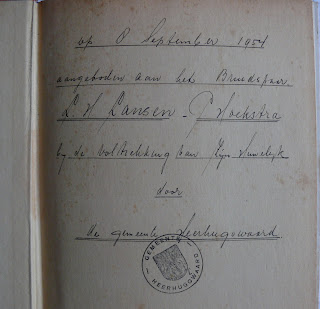 op 8 September 1954
aangeboden aan het Bruidspaar
L. W. Lansen - P. Hoekstra
bij de voltrekking van zijn huwelijk
door
de gemeente Heerhugowaard
GEMEENTE HEERHUGOWAARD